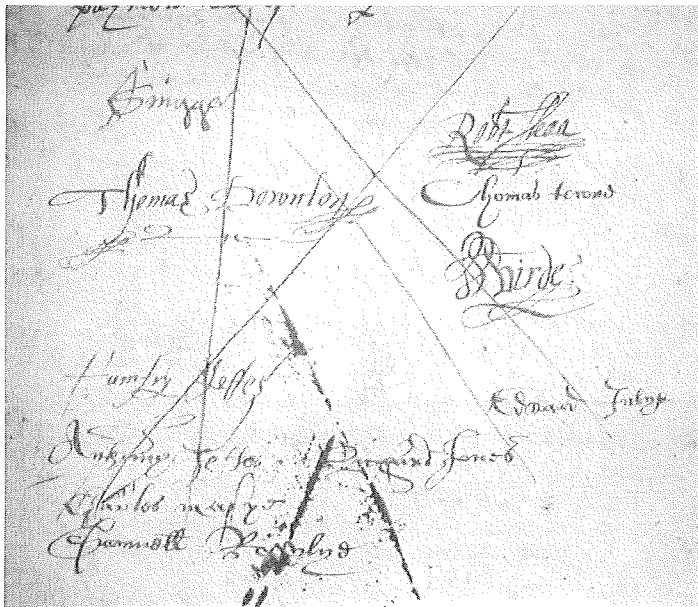 J Singger
Robt Shaa
Thomas Downton
Thomas towne
WBirde
Humfry Jeffes
Edward Jubye
Anthony Jeffes
Richard Jones
Charles massye
Samuell Rowlye